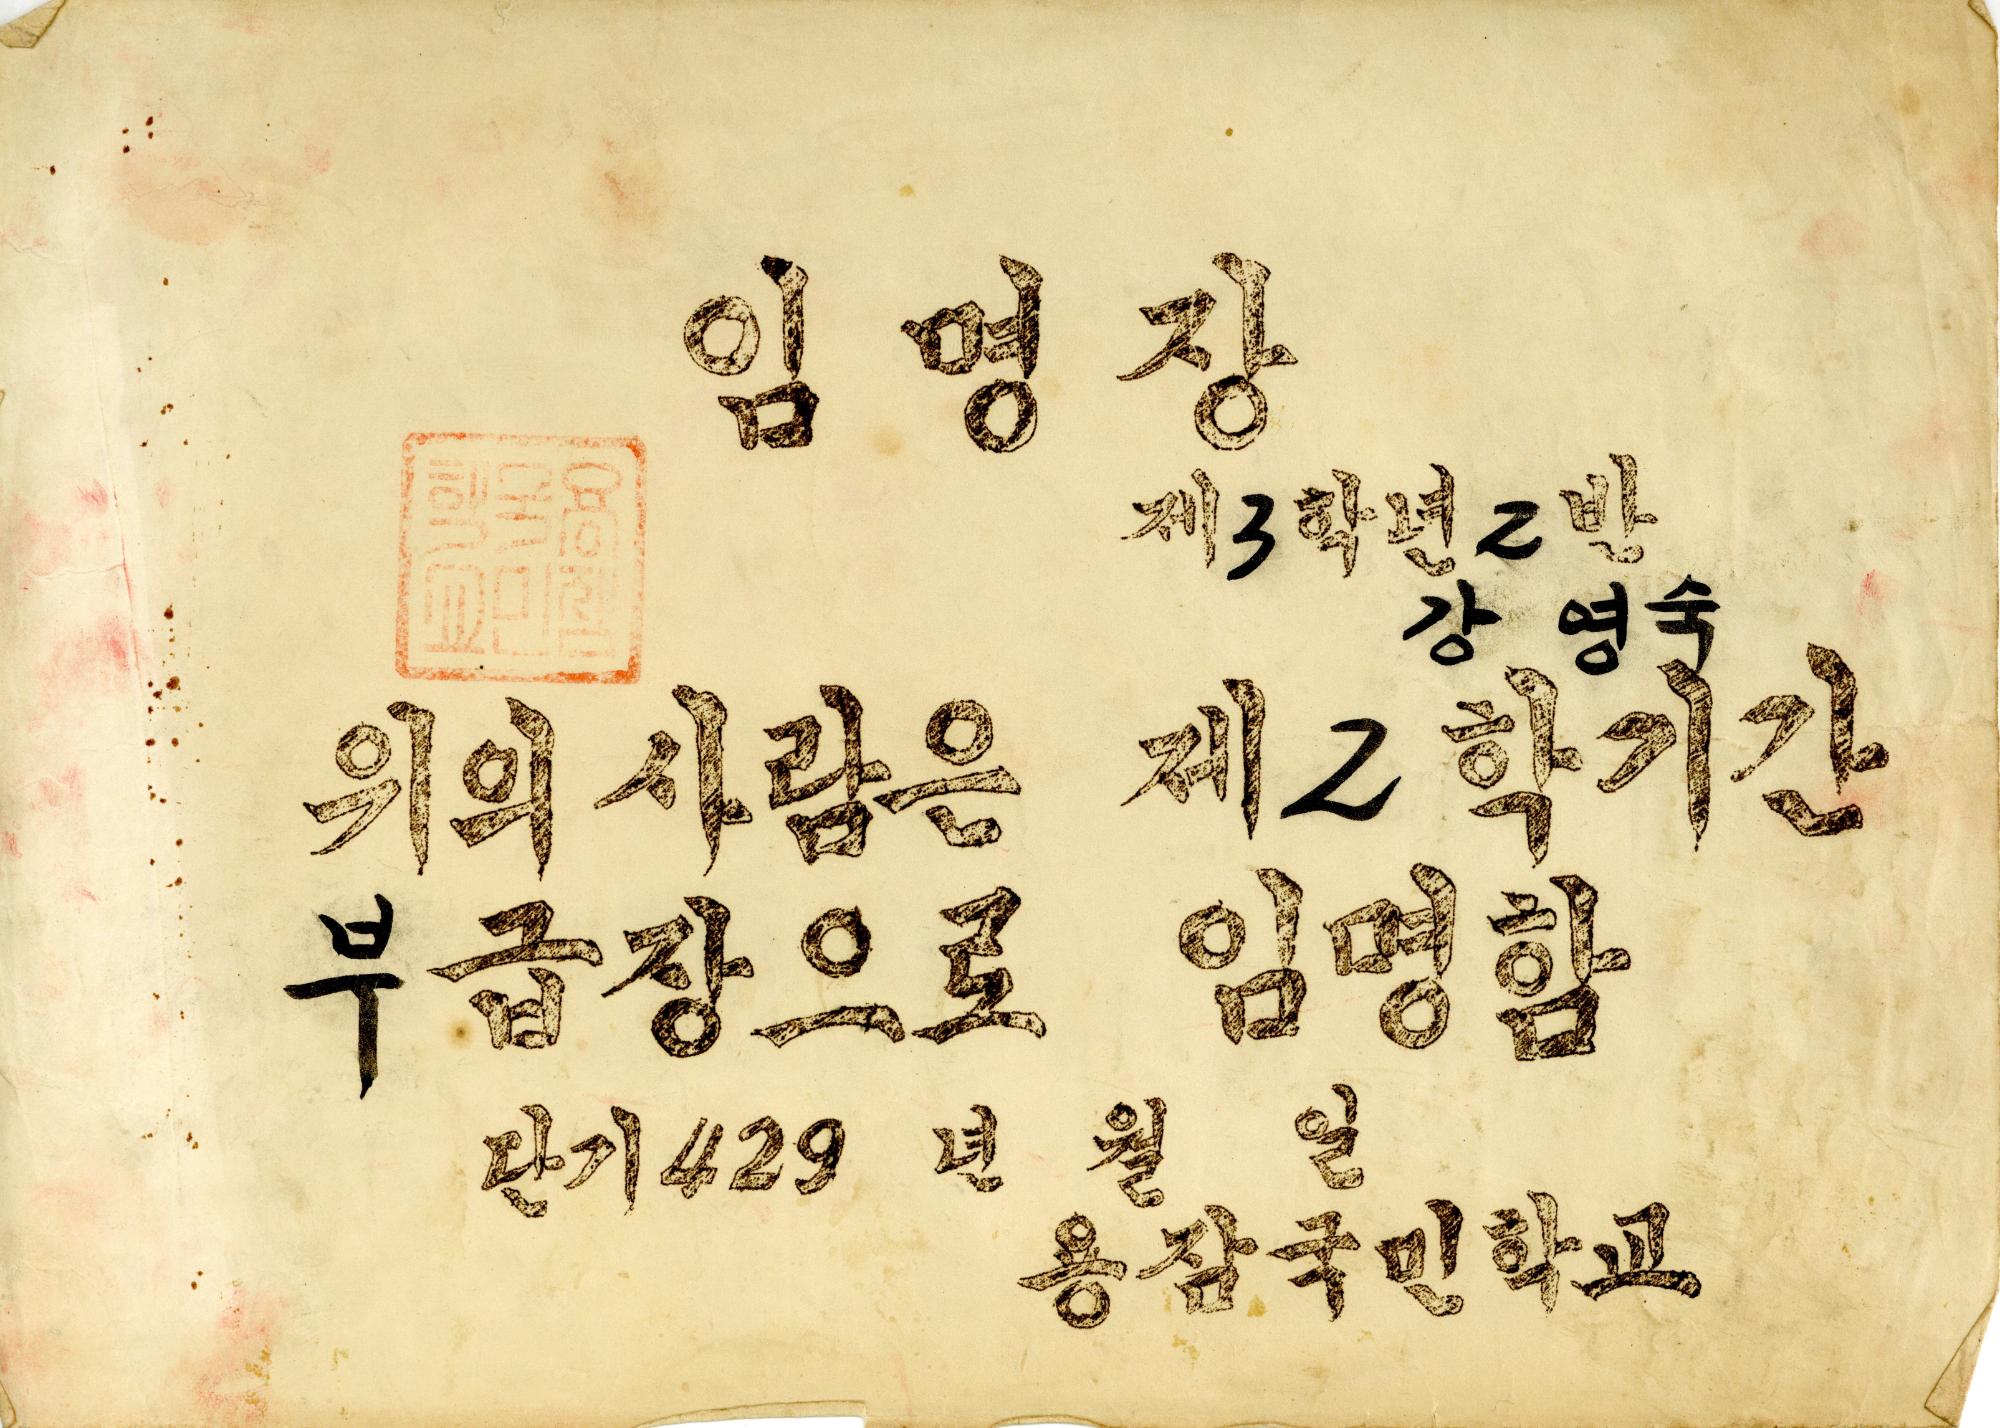 임명장
제3학년2반
강 영숙
위의 사람은 제2학기간
부급장으로 임명함
단기429 년 월 일
용잠국민학교